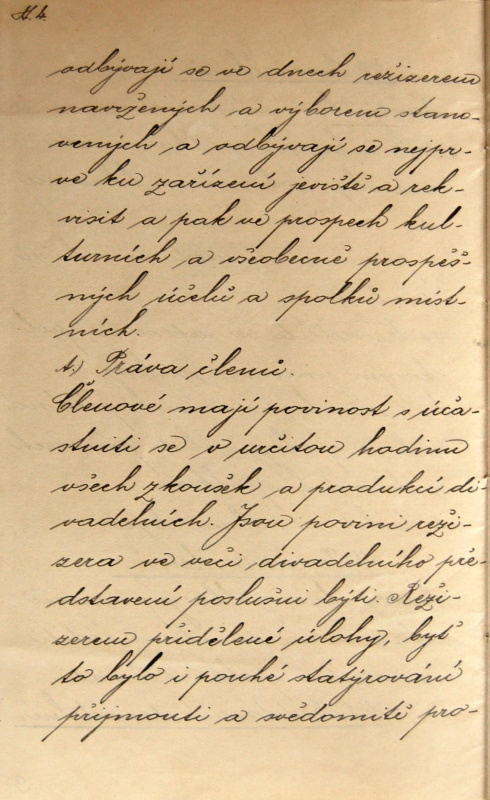 H. 4.
odbývají se ve dnech režizerem
navržených a výborem stano-
vených, a odbývají se nejpr-
ve ku zařízení jeviště a rek-
visit a pak ve prospech kul-
turních a všeobecně prospěš-
ných účelů a spolků míst-
ních.
4.) Práva členů.
Členové mají povinost súča-
stniti se v určitou hodinu
všech zkoušek a produkcí di-
vadelních. Jsou povini reži-
zera ve věci divadelního pře-
dstavení poslušni býti. Reži-
zerem přidělené úlohy, byť
to bylo i pouhé statýrování
přijmouti a svědomitě pro-